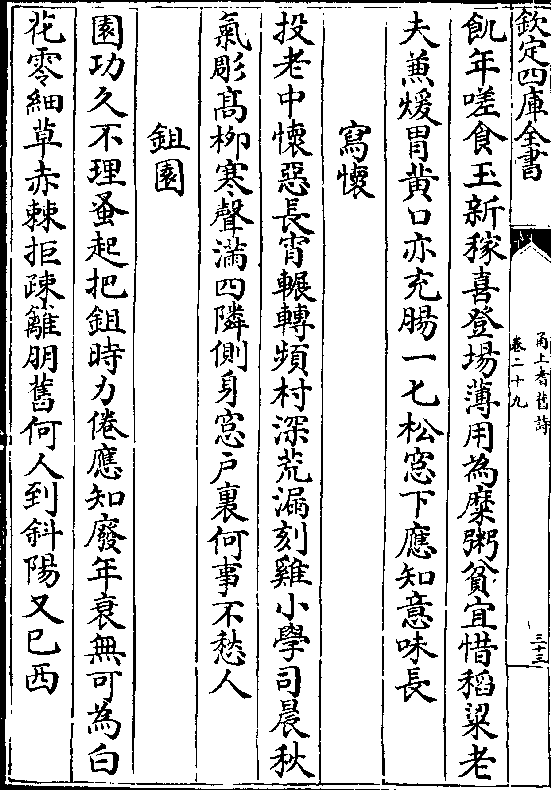 欽定四庫全書
甬上耆舊詩
卷二十九
三十三
飢年嗟食玉新稼喜登場薄用為糜粥貧宜惜稻粱老
夫兼煖胃黄口亦充腸一七松窓下應知意味長
寫懷
投老中懷惡長宵輾轉頻村深荒漏刻雞小學司晨秋
氣彫髙柳寒聲滿四隣側身窓户裏何事不愁人
鉏園
園功久不理蚤起把鉏時力倦應知廢年衰無可為白
花零細草赤棘拒疎籬朋舊何人到斜陽又已西